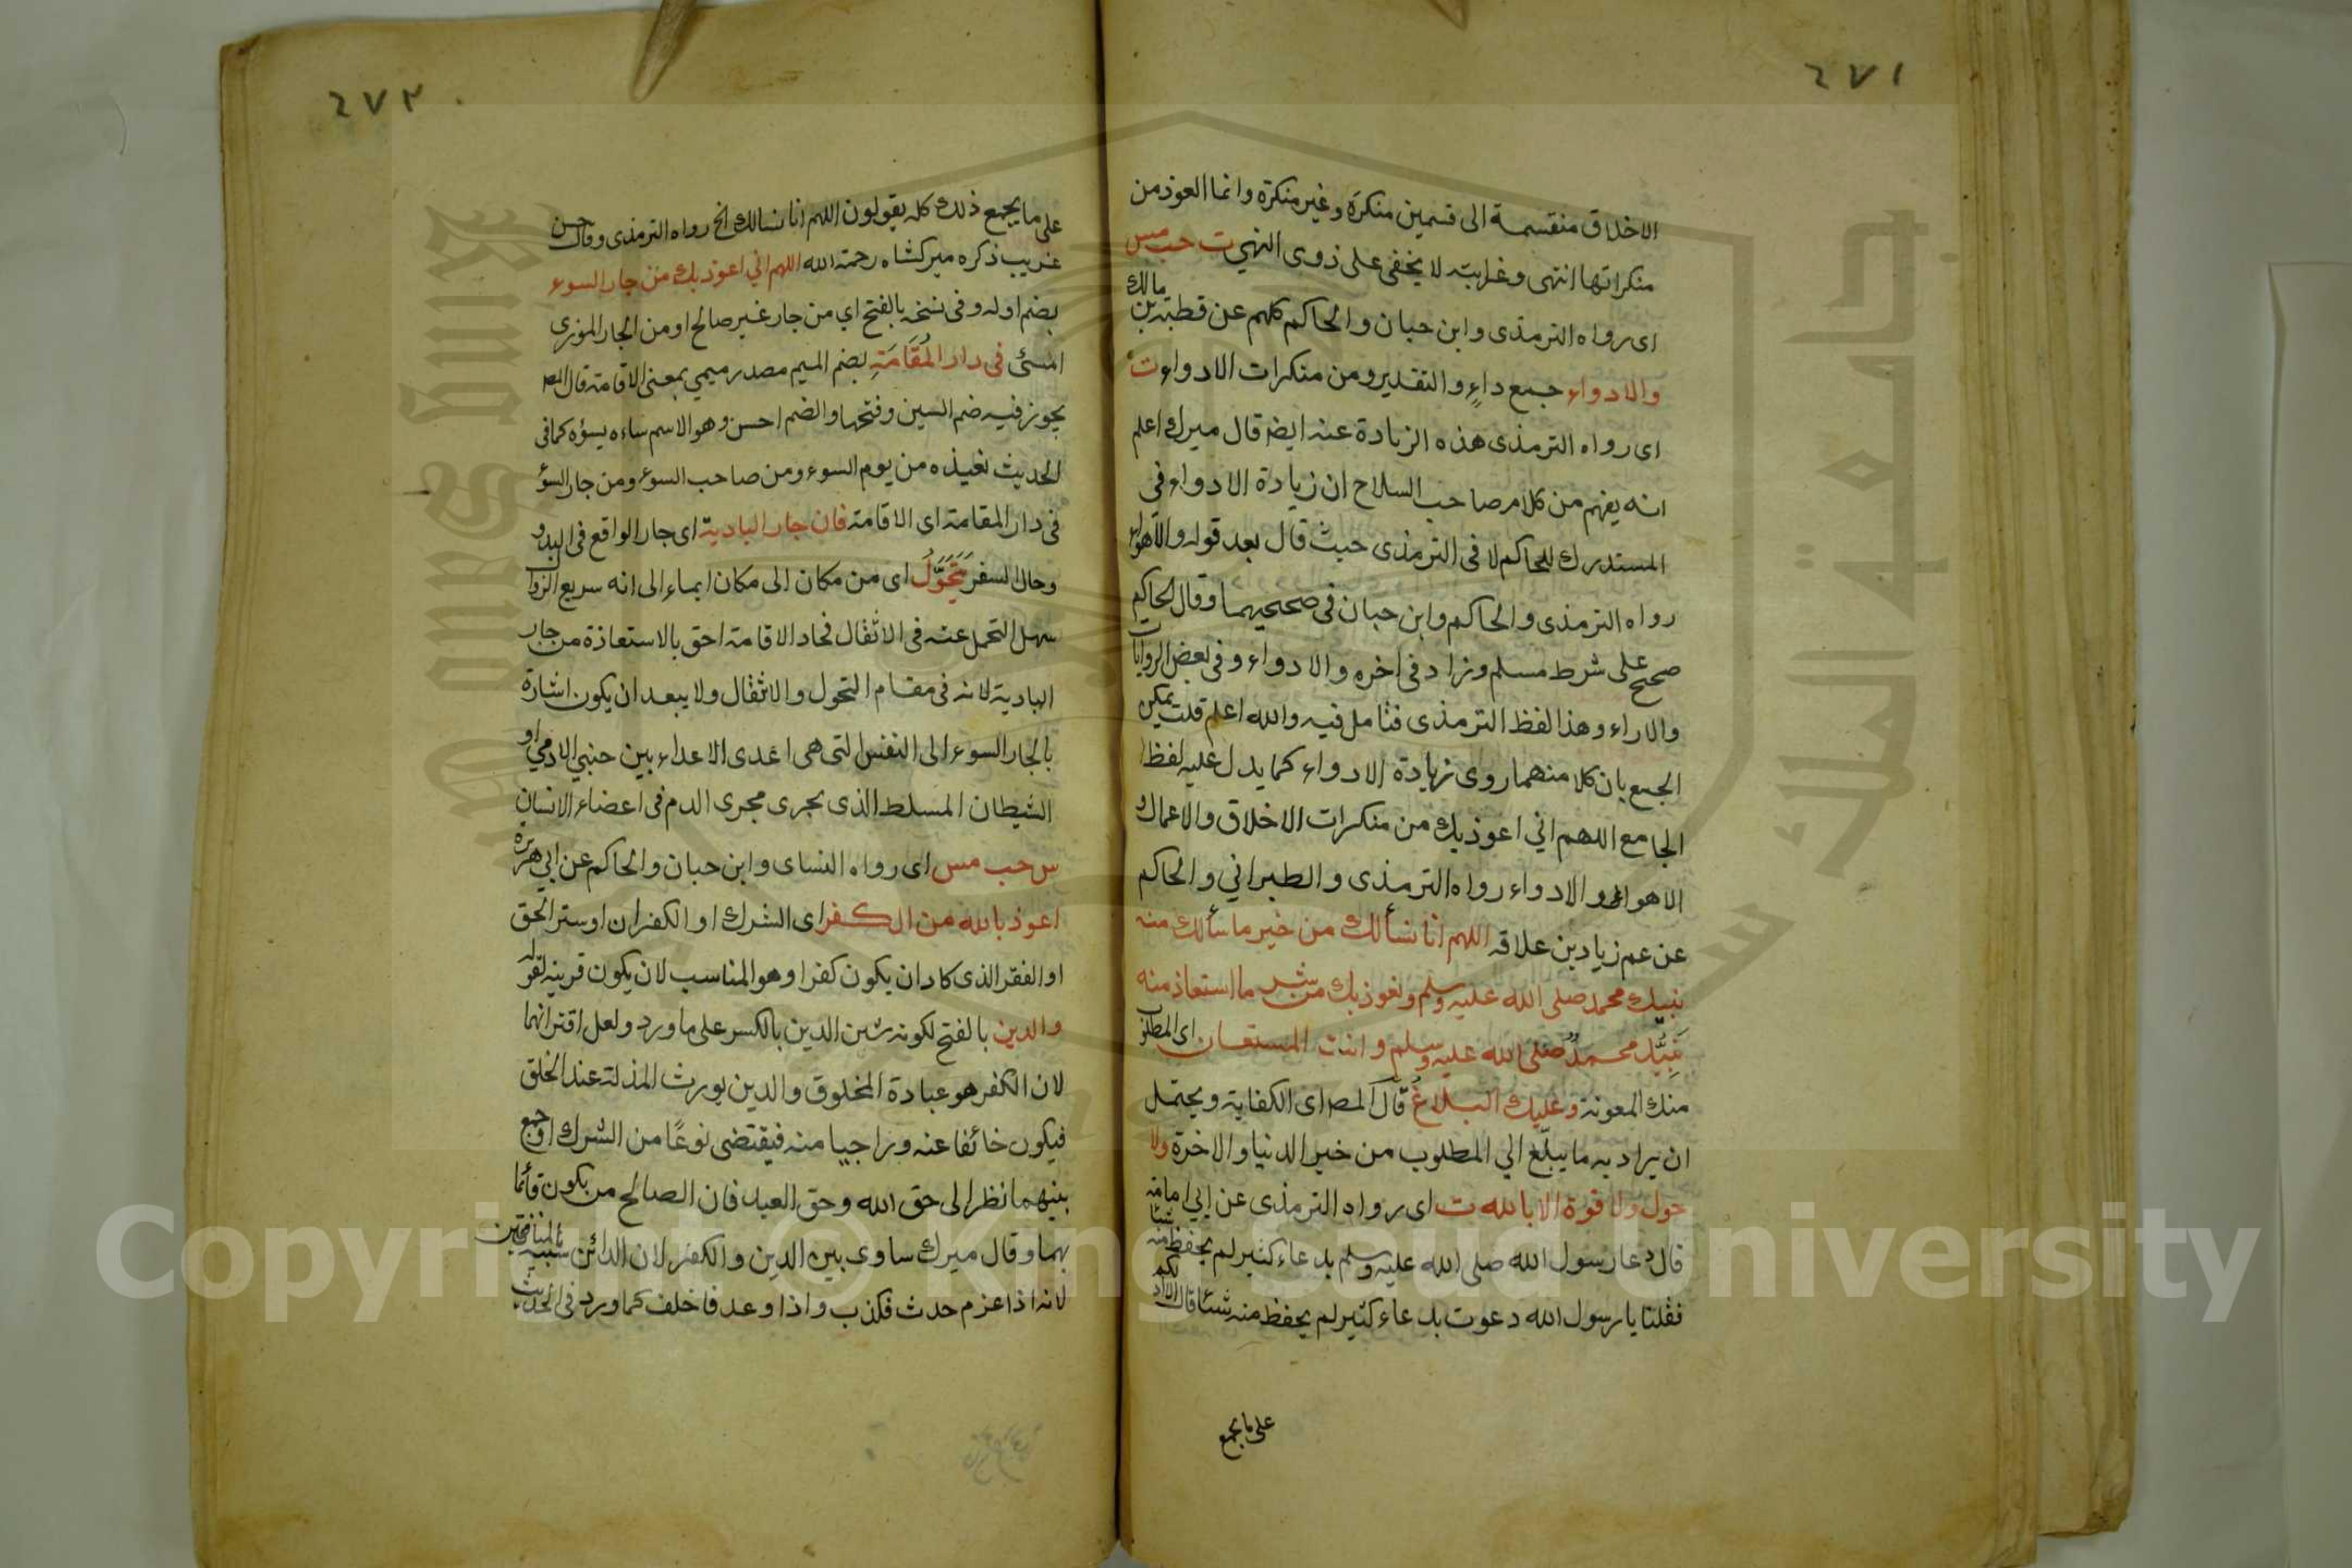 ٢٧١
الاخلاق منقسمة الى قسمين منكرة وغير منكرة وانما العوذ من
منكراتها انتهى وغرابته لا يخفى على ذوى النهي ت حب مس
اى رواه الترمذى وابن حبان والحاكم كلهم عن قطبة بن مالك
والادواء جمع داءٍ والتقدير ومن منكرات الادواء ت
اى رواه الترمذى هذه الزيادة عنه ايضا قال ميرك اعلم
انه يفهم من كلام صاحب السلاح ان زيادة الادواء فى
المستدرك للحاكم لا فى الترمذى حيث قال بعد قوله والاهواء
رواه الترمذى والحاكم وابن حبان فى صحيحيهما وقال الحاكم
صحيح على شرط مسلم وزاد فى اخره والادواء وفى بعض الروايات
والاراء وهذا لفظ الترمذى فتامل فيه والله اعلم قلت يمكن
الجمع بان كلا منهما روى زيادة الادواء كما يدل عليه لفظ
الجامع اللهم اني اعوذ بك من منكرات الاخلاق والاعمال و
الاهواء والادواء رواه الترمذى والطبراني والحاكم
عن عم زياد بن علاقه اللهم انا نسألك من خير ما سألك منه
نبيك محمد صلى الله عليه وسلم ونعوذ بك من شر ما استعاذ منه
نَبِيُّك محمدٌ صلى الله عليه وسلم وانت المستعان اى المطلوب
منك المعونة وعليك البلاغُ قال المص اى الكفاية ويحتمل
ان يراد به ما يبلّغ الي المطلوب من خير الدنيا والاخرة ولا
حول ولا قوة الا بالله ت اى رواه الترمذى عن ابي امامة
قال دعا رسول الله صلى الله عليه وسلم بدعاء كثير لم يحفظ منه شيئا
فقلنا يا رسول الله دعوت بدعاء كثير لم يحفظ منه شيئا قال الا ادلكم
على ما يجمع
٢٧٢
على ما يجمع ذلك كله يقولون اللهم انا نسالك الخ رواه الترمذى وقال حسن
غريب ذكره ميركشاه رحمة الله اللهم اني اعوذ بك من جار السوء
بضم اوله وفى نسخة بالفتح اي من جار غير صالح او من الجار الموزى
المسئ فى دار المُقَامَةِ بضم الميم مصدر ميمي بمعنى الاقامة قال المص
يجوز فيه ضم السين وفتحها والضم احسن وهو الاسم ساءه يسؤه كما فى
الحديث نعيذه من يوم السوء ومن صاحب السوء ومن جار السؤ
فى دار المقامة اى الاقامة فان جار البادية اى جار الواقع فى البدو
وحال السفر يَتَحَوَّلُ اى من مكان الى مكان ايماء الى انه سريع الزوال
سهل التحمل عنه فى الاثقال فحاد الاقامة احق بالاستعاذة من جار
البادية لانه فى مقام التحول والاثقال ولا يبعد ان يكون اشارة
بالجار السوء الى النفس التى هى اعدى الاعداء بين جنبي الادمي او
الشيطان المسلط الذى يجرى مجرى الدم فى اعضاء الانسان
س حب مس اى رواه النساى وابن حبان والحاكم عن ابي هريرة
اعوذ بالله من الكفر اى الشرك او الكفران او ستر الحق
او الفقر الذى كاد ان يكون كفرا وهو المناسب لان يكون قرينة لقوله
والدين بالفتح لكونه شين الدين بالكسر على ما ورد ولعل اقترانهما
لان الكفر هو عبادة المخلوق والدين يورث المذلة عند الخلق
فيكون خائفا عنه وراجيا منه فيقتضى نوعًا من الشرك او جمع
بينهما نظر الى حق الله وحق العبد فان الصالح من يكون قائما
بهما وقال ميرك ساوى بين الدين والكفر لان الدائن شبيه بالمنافقين
لانه اذا عزم حدث فكذب واذا وعد فاخلف كما ورد فى الحديث
جامعة الملك سعود
King Saud University
Copyright © King Saud University